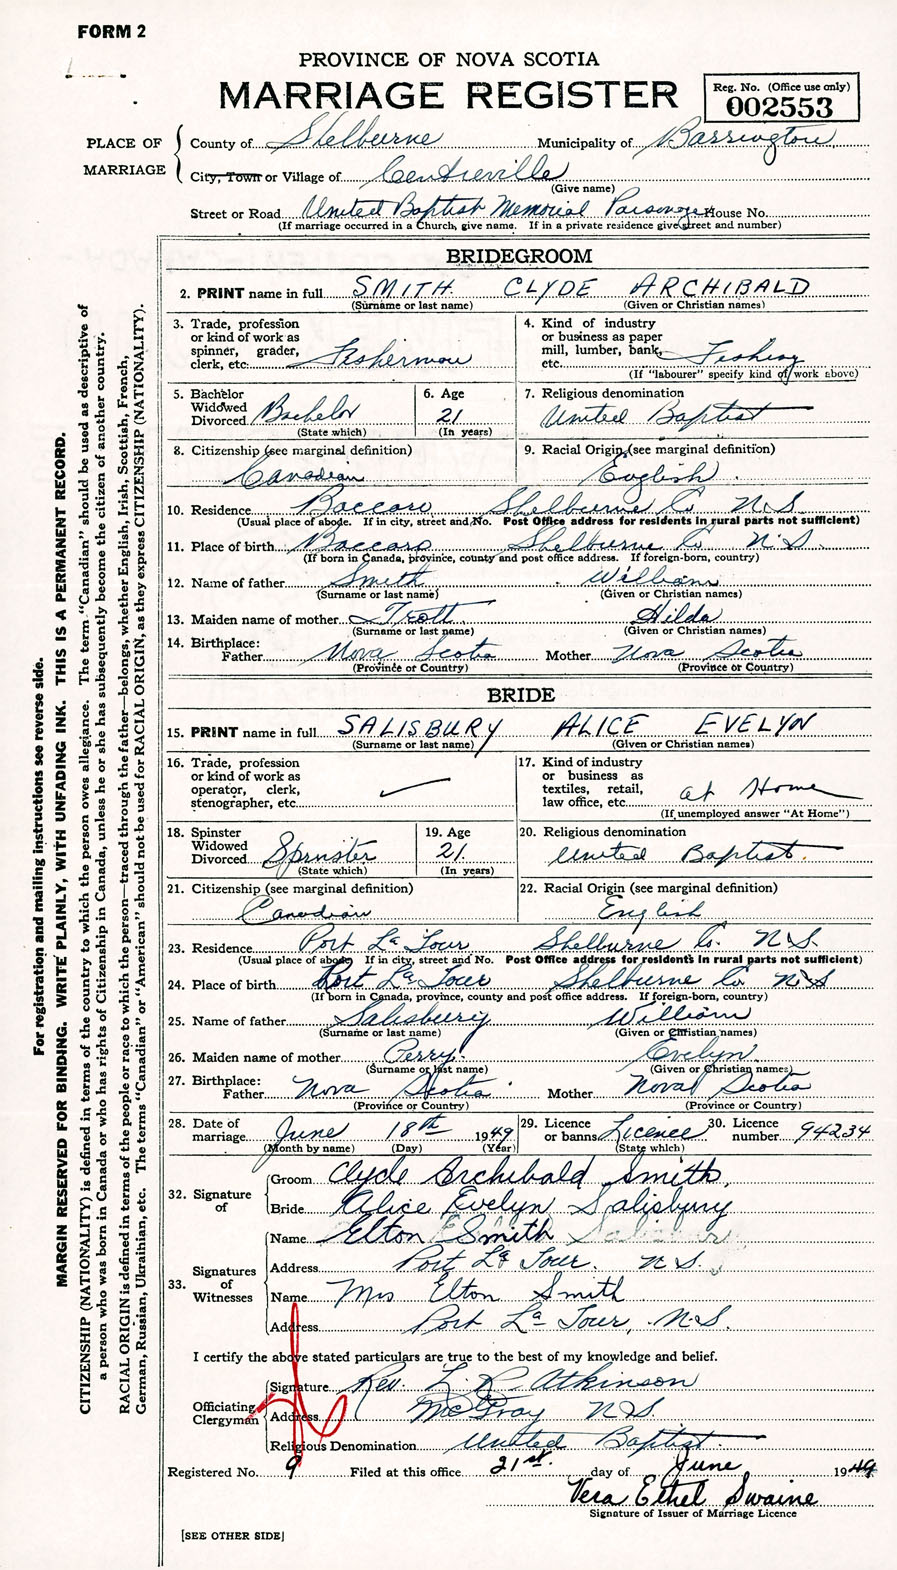 FORM 2
PROVINCE OF NOVA SCOTIA
MARRIAGE REGISTER
Reg. No. (Office use only)
002553
PLACE OF MARRIAGE
County of Shelburne Municipality of Barrington
City, Town or Village of Centreville
(Give name)
Street or Road United Baptist Memorial Parsonage House No.
(If marriage occurred in a Church, give name. If in a private residence give street and number)
BRIDEGROOM
2. PRINT name in full SMITH CLYDE ARCHIBALD
(Surname or last name) (Given or Christian names)
3. Trade, profession or kind of work as spinner, grader, clerk, etc. Fisherman
4. Kind of industry or business as paper mill, lumber, bank, etc. Fishing
(If "labourer" specify kind of work above)
5. Bachelor Widowed Divorced Bachelor
(State which)
6. Age 21
(In years)
7. Religious denomination
United Baptist
8. Citizenship (see marginal definition)
Canadian
9. Racial Origin (see marginal definition)
English
10. Residence Baccaro Shelburne Co N.S.
(Usual place of abode. If in city, street and No. Post Office address for residents in rural parts not sufficient)
11. Place of birth Baccaro Shelburne Co N.S.
(If born in Canada, province, county and post office address. If foreign-born, country)
12. Name of father Smith William
(Surname or last name) (Given or Christian names)
13. Maiden name of mother Trott Hilda
(Surname or last name) (Given or Christian names)
14. Birthplace:
Father Nova Scotia Mother Nova Scotia
(Province or Country) (Province or Country)
BRIDE
15. PRINT name in full SALISBURY ALICE EVELYN
(Surname or last name) (Given or Christian names)
16. Trade, profession or kind of work as operator, clerk, stenographer, etc.
17. Kind of industry or business as textiles, retail, law office, etc. at Home
(If unemployed answer "At Home")
18. Spinster Widowed Divorced Spinster
(State which)
19. Age 21.
(In years)
20. Religious denomination
United Baptist.
21. Citizenship (see marginal definition)
Canadian
22. Racial Origin (see marginal definition)
English
23. Residence Port La Tour Shelburne Co. N.S.
(Usual place of abode If in city, street and No. Post Office address for residents in rural parts not sufficient)
24. Place of birth Port La Tour Shelburne Co N.S
(If born in Canada, province, county and post office address. If foreign-born, country)
25. Name of father Salisbury William
(Surname or last name) (Given or Christian names)
26. Maiden name of mother Perry. Evelyn.
(Surname or last name) (Given or Christian names)
27. Birthplace:
Father Nova Scotia Mother Nova Scotia
(Province or Country) (Province or Country)
28. Date of marriage June 18th 1949
(Month by name) (Day) (Year)
29. Licence or banns Licence
(State which)
30. Licence number 94234
32. Signature of
Groom Clyde Archibald Smith,
Bride Alice Evelyn Salisbury
33. Signatures of Witnesses
Name Elton E Smith Salisbury
Address Port La Tour. N.S.
Name Mrs Elton Smith
Address Port La Tour, N.S.
I certify the above stated particulars are true to the best of my knowledge and belief.
Officiating Clergyman
Signature Rev. L. R. Atkinson
Address McGray N.S.
Religious Denomination United Baptist.
Registered No. 9 Filed at this office 21st. day of June 1949
Vera Ethel Swaine
Signature of Issuer of Marriage Licence
[SEE OTHER SIDE]
For registration and mailing instructions see reverse side.
MARGIN RESERVED FOR BINDING. WRITE PLAINLY, WITH UNFADING INK. THIS IS A PERMANENT RECORD.
CITIZENSHIP (NATIONALITY) is defined in terms of the country to which the person owes allegiance. The term "Canadian" should be used as descriptive of
a person who was born in Canada or who has rights of Citizenship in Canada, unless he or she has subsequently become the citizen of another country.
RACIAL ORIGIN is defined in terms of the people or race to which the person—traced through the father—belongs, whether English, Irish, Scottish, French,
German, Russian, Ukrainian, etc. The terms "Canadian" or "American" should not be used for RACIAL ORIGIN, as they express CITIZENSHIP (NATIONALITY).